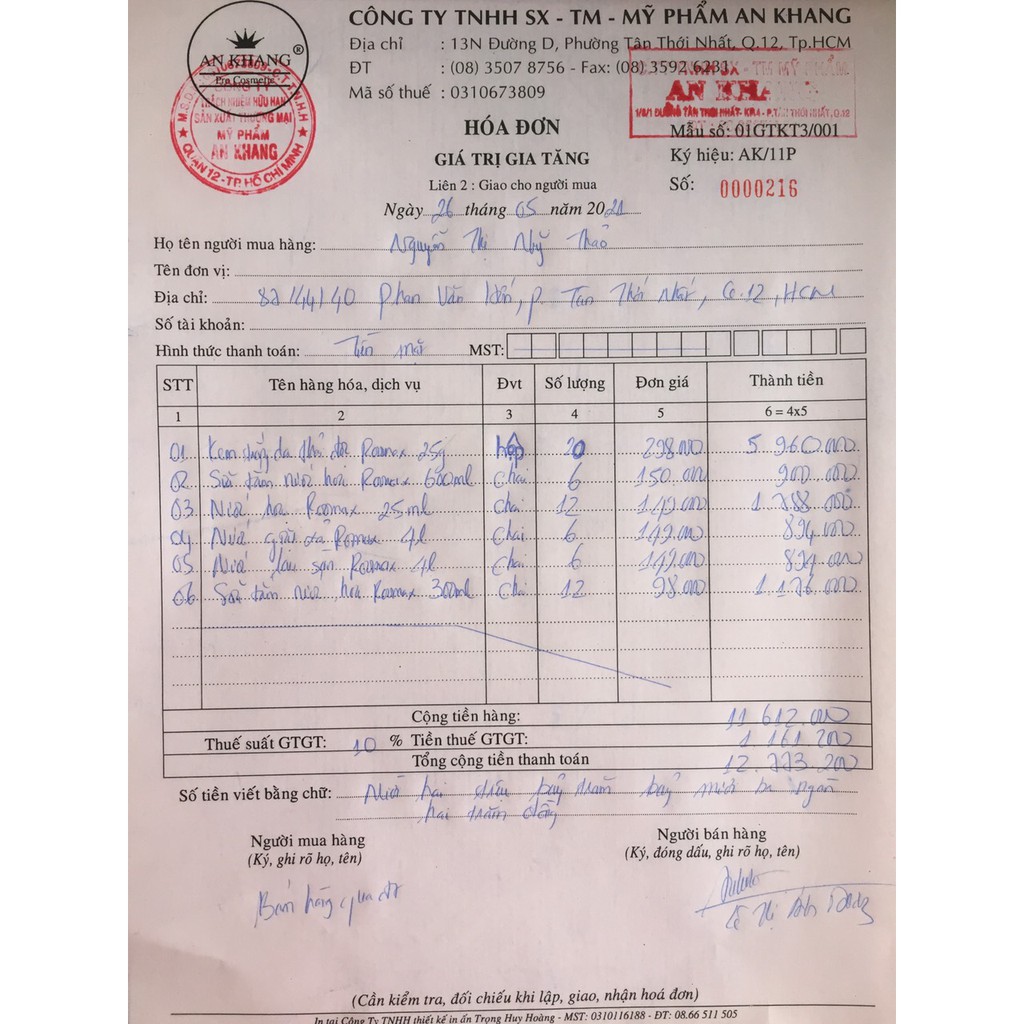 CÔNG TY TNHH SX - TM - MỸ PHẨM AN KHANG
AN KHANG ®
Pro Cosmetic
Địa chỉ : 13N Đường D, Phường Tân Thới Nhất, Q.12, Tp.HCM
ĐT : (08) 3507 8756 - Fax: (08) 3592 6231
Mã số thuế : 0310673809
M.S.D.N: 0310673809-C.T.T.N.H.H
CÔNG TY
TRÁCH NHIỆM HỮU HẠN
SẢN XUẤT THƯƠNG MẠI
MỸ PHẨM
AN KHANG
QUẬN 12 - TP. HỒ CHÍ MINH
SX - TM MỸ PHẨM
AN KHANG
ĐƯỜNG TÂN THỚI NHẤT- KP.4 - P.TÂN THỚI NHẤT, Q.12
HÓA ĐƠN
GIÁ TRỊ GIA TĂNG
Liên 2 : Giao cho người mua
Mẫu số: 01GTKT3/001
Ký hiệu: AK/11P
Số: 0000216
Ngày 26 tháng 05 năm 2021
Họ tên người mua hàng: Nguyễn Thị Thảo
Tên đơn vị:
Địa chỉ: 82/44/40 Phan Văn Hớn, P. Tân Thới Nhất, Q.12, HCM
Số tài khoản:
Hình thức thanh toán: Tiền mặt MST:
STT Tên hàng hóa, dịch vụ Đvt Số lượng Đơn giá Thành tiền
1 2 3 4 5 6 = 4x5
01 Kem da Roomax 25g hộp 20 298.000 5.960.000
02 Sữa tắm nước hoa Roomax 600ml chai 6 150.000 900.000
03 Nước hoa Roomax 25ml chai 12 149.000 1.788.000
04 Nước Roomax 4l chai 6 149.000 894.000
05 Nước lau sàn Roomax 4l chai 6 149.000 894.000
06 Sữa tắm nước hoa Roomax 300ml chai 12 98.000 1.176.000
Cộng tiền hàng: 11.612.000
Thuế suất GTGT: 10 % Tiền thuế GTGT: 1.161.200
Tổng cộng tiền thanh toán 12.773.200
Số tiền viết bằng chữ: Mười hai triệu bảy trăm bảy mươi ba ngàn
hai trăm đồng
Người mua hàng
(Ký, ghi rõ họ, tên)
Người bán hàng
(Ký, đóng dấu, ghi rõ họ, tên)
Bán hàng qua
(Cần kiểm tra, đối chiếu khi lập, giao, nhận hoá đơn)
In tại Công Ty TNHH thiết kế in ấn Trọng Huy Hoàng - MST: 0310116188 - ĐT: 08.66 511 505